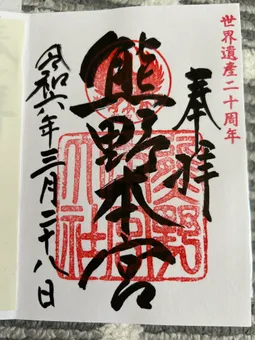 世界遺産二十周年
奉拝
熊野本宮
令和六年三月二十八日